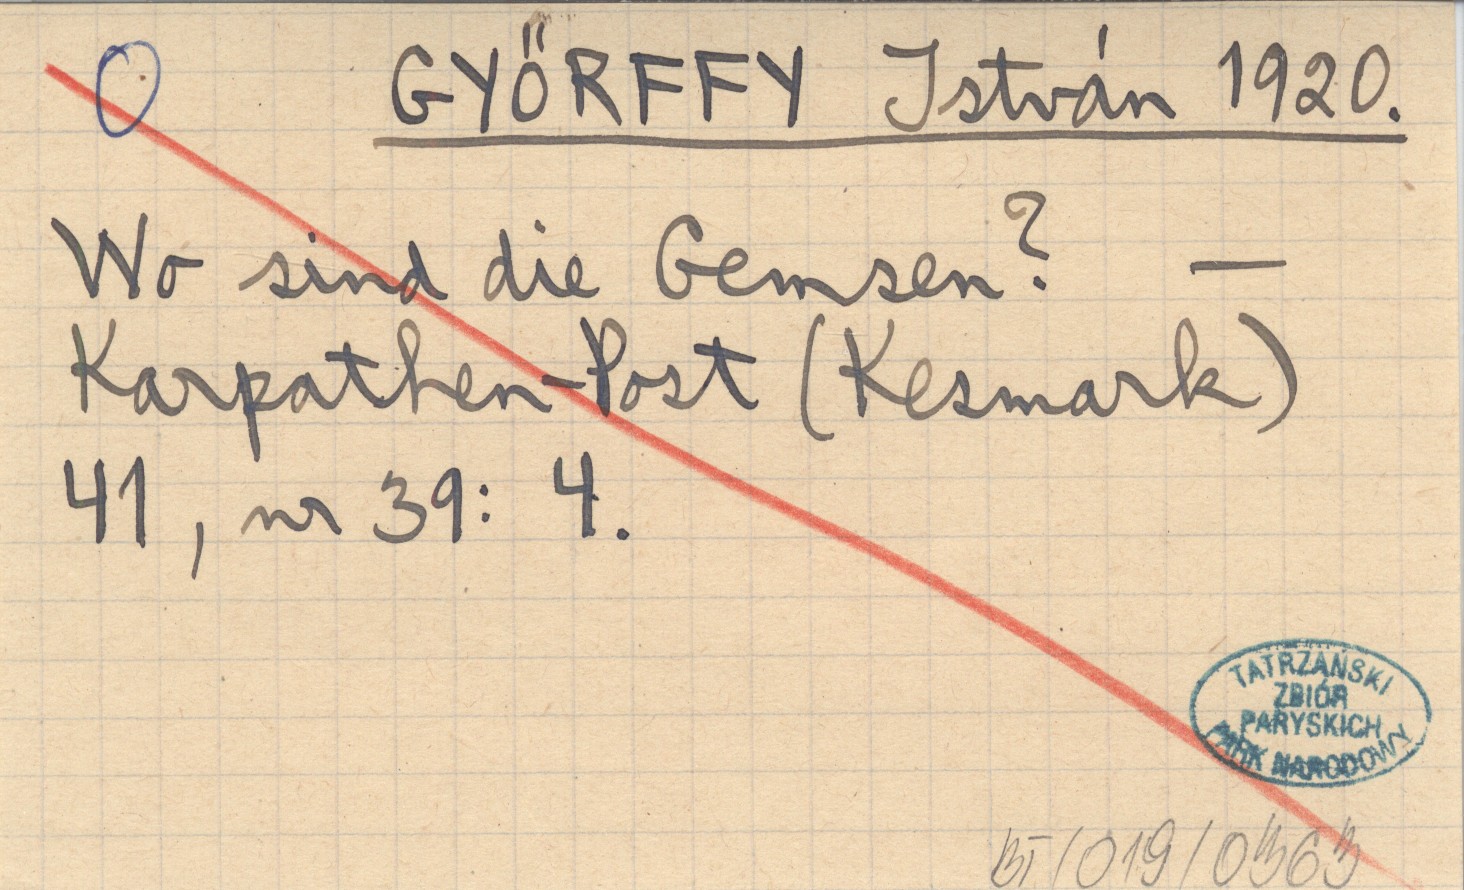 GYŐRFFY István 1920.
Wo sind die Gemsen? —
Karpathen-Post (Kesmark)
41, nr 39: 4.
TATRZAŃSKI
ZBIÓR
PARYSKICH
PARK NARODOWY
BT/019/0363